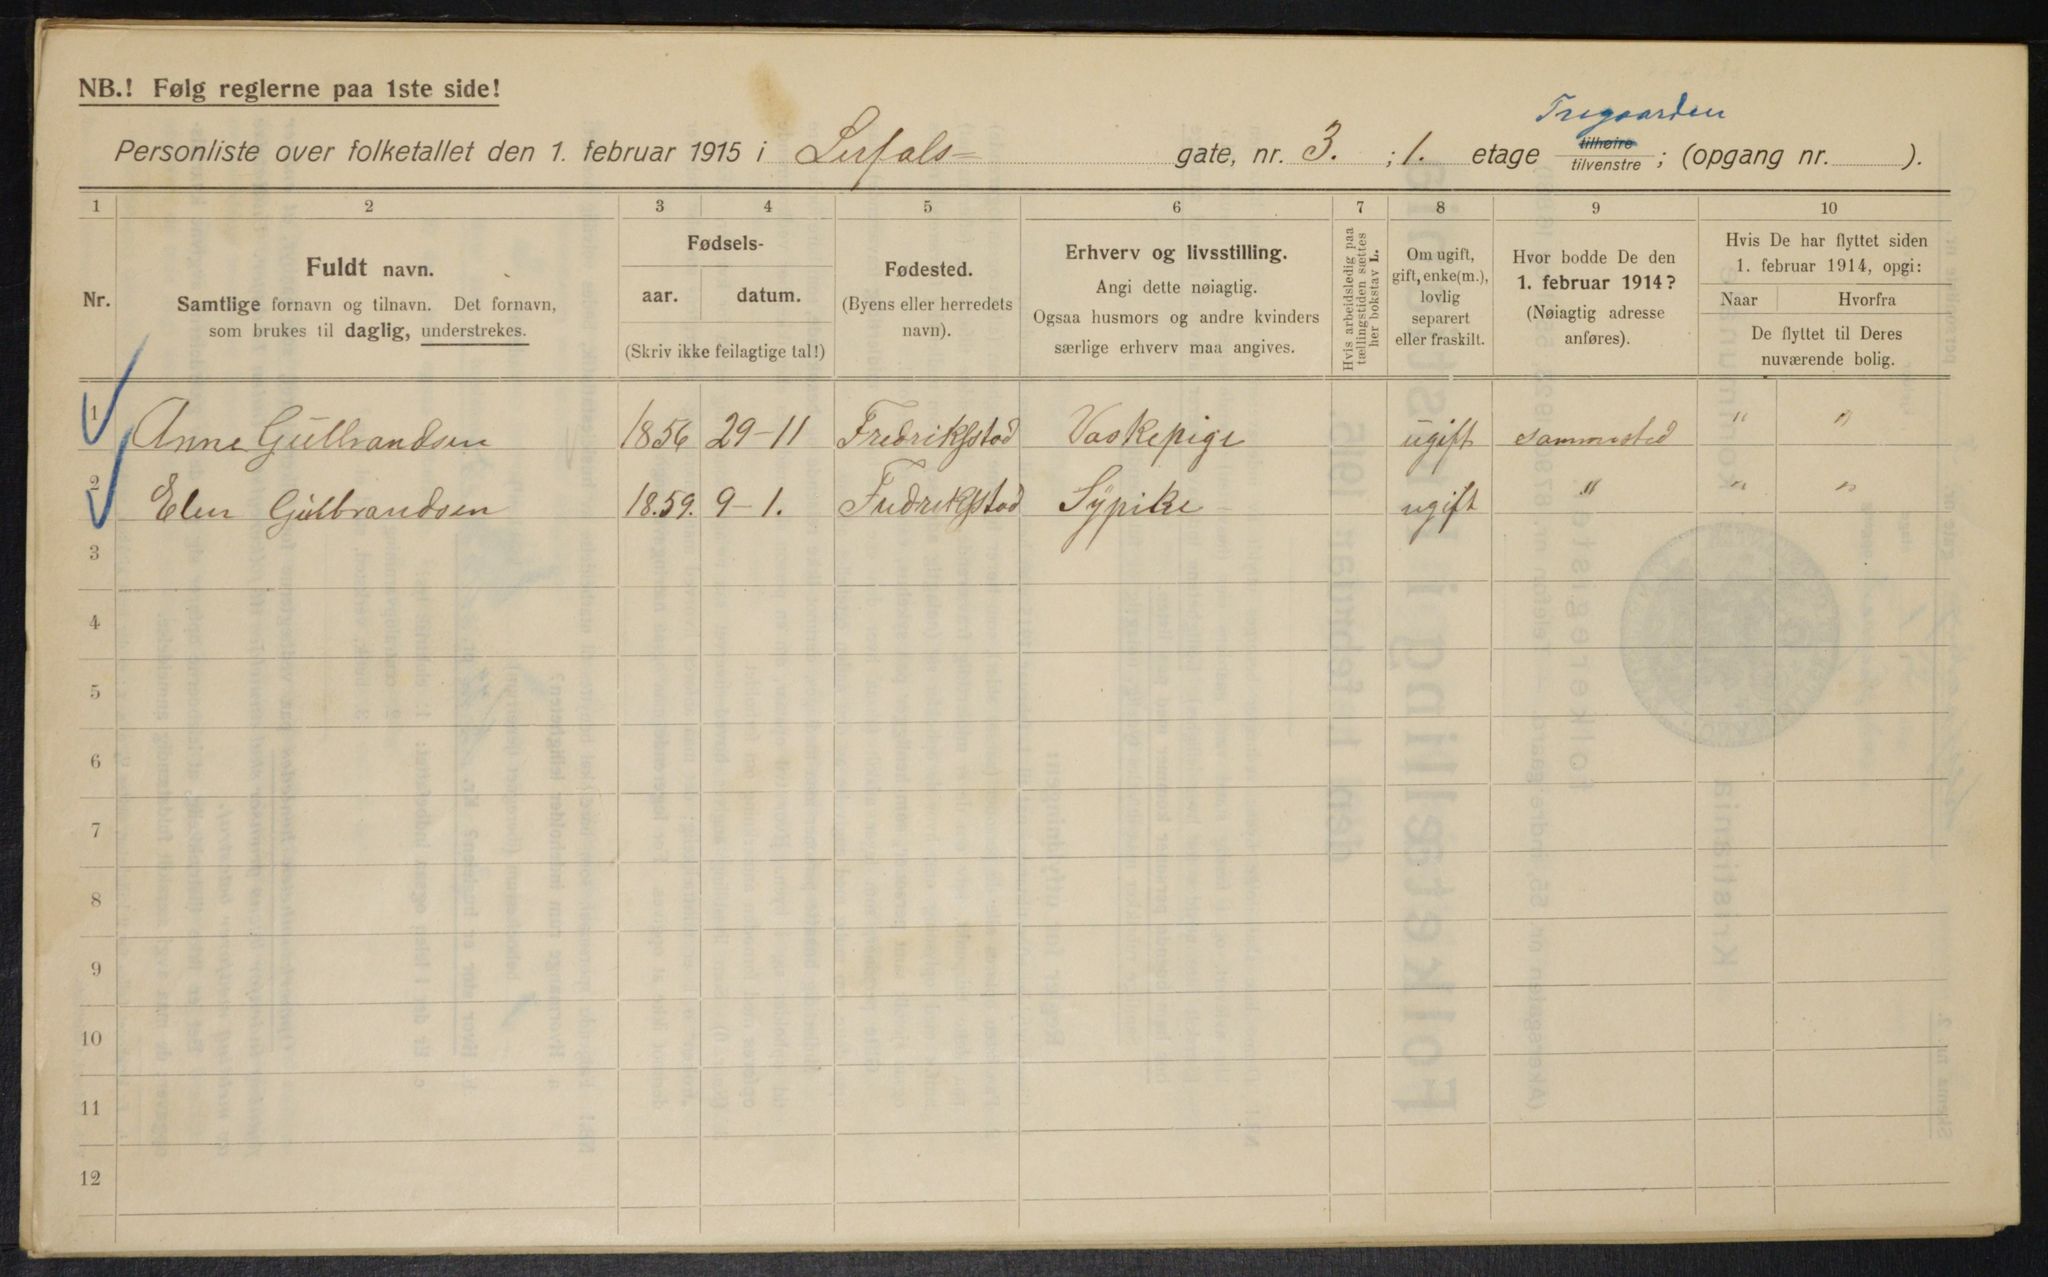 NB.! Følg reglerne paa 1ste side!
Personliste over folketallet den 1. februar 1915 i Lerfals= gate, nr. 3. ; 1. etage tilhøire tilvenstre ; (opgang nr. ).
1 2 3 4 5 6 7 8 9 10
Nr.
Fuldt navn.
Samtlige fornavn og tilnavn. Det fornavn,
som brukes til daglig, understrekes.
Fødsels-
aar. datum.
(Skriv ikke feilagtige tal!)
Fødested.
(Byens eller herredets
navn).
Erhverv og livsstilling.
Angi dette nøiagtig.
Ogsaa husmors og andre kvinders
særlige erhverv maa angives.
Hvis arbeidsledig paa
tællingstiden sættes
her bokstav L.
Om ugift,
gift, enke(m.),
lovlig
separert
eller fraskilt.
Hvor bodde De den
1. februar 1914?
(Nøiagtig adresse
anføres).
Hvis De har flyttet siden
1. februar 1914, opgi:
Naar Hvorfra
De flyttet til Deres
nuværende bolig.
1 Anne Gulbrandsen 1856 29-11 Fredrikstad Vaskepige ugift sammested " "
2 Elen Gulbrandsen 18.59. 9-1. Fredrikstad Sypike ugift " " "
3
4
5
6
7
8
9
10
11
12